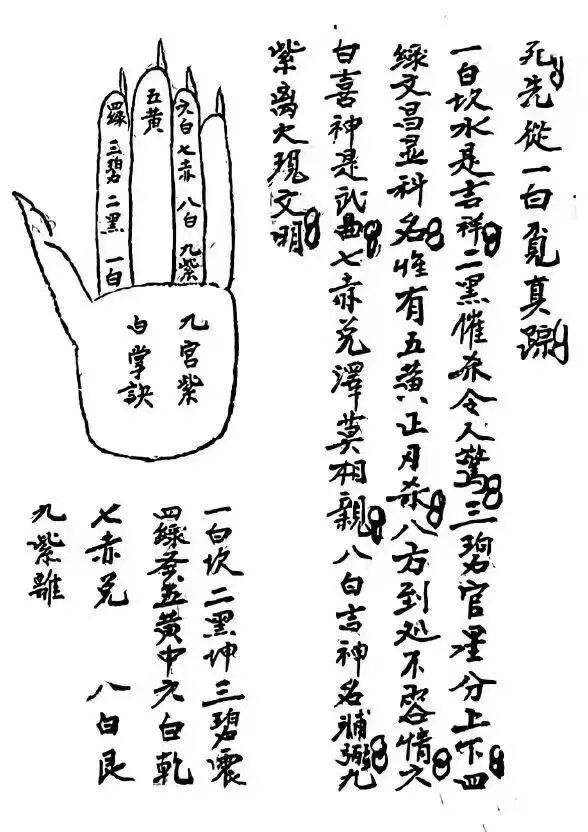 死先從一白覓真蹤
一白坎水是吉祥二黑催杀令人驚三碧官星分上下四
綠文昌显科名惟有五黄正月杀八方到处不容情六
白喜神是武曲七赤兑澤莫相親八白吉神名辅弼九
紫离大現文明
六白七赤八白九紫
五黄
四綠三碧二黑一白
九宫紫
白掌訣
一白坎二黑坤三碧震
四綠巽五黄中六白乾
七赤兑 八白艮
九紫離